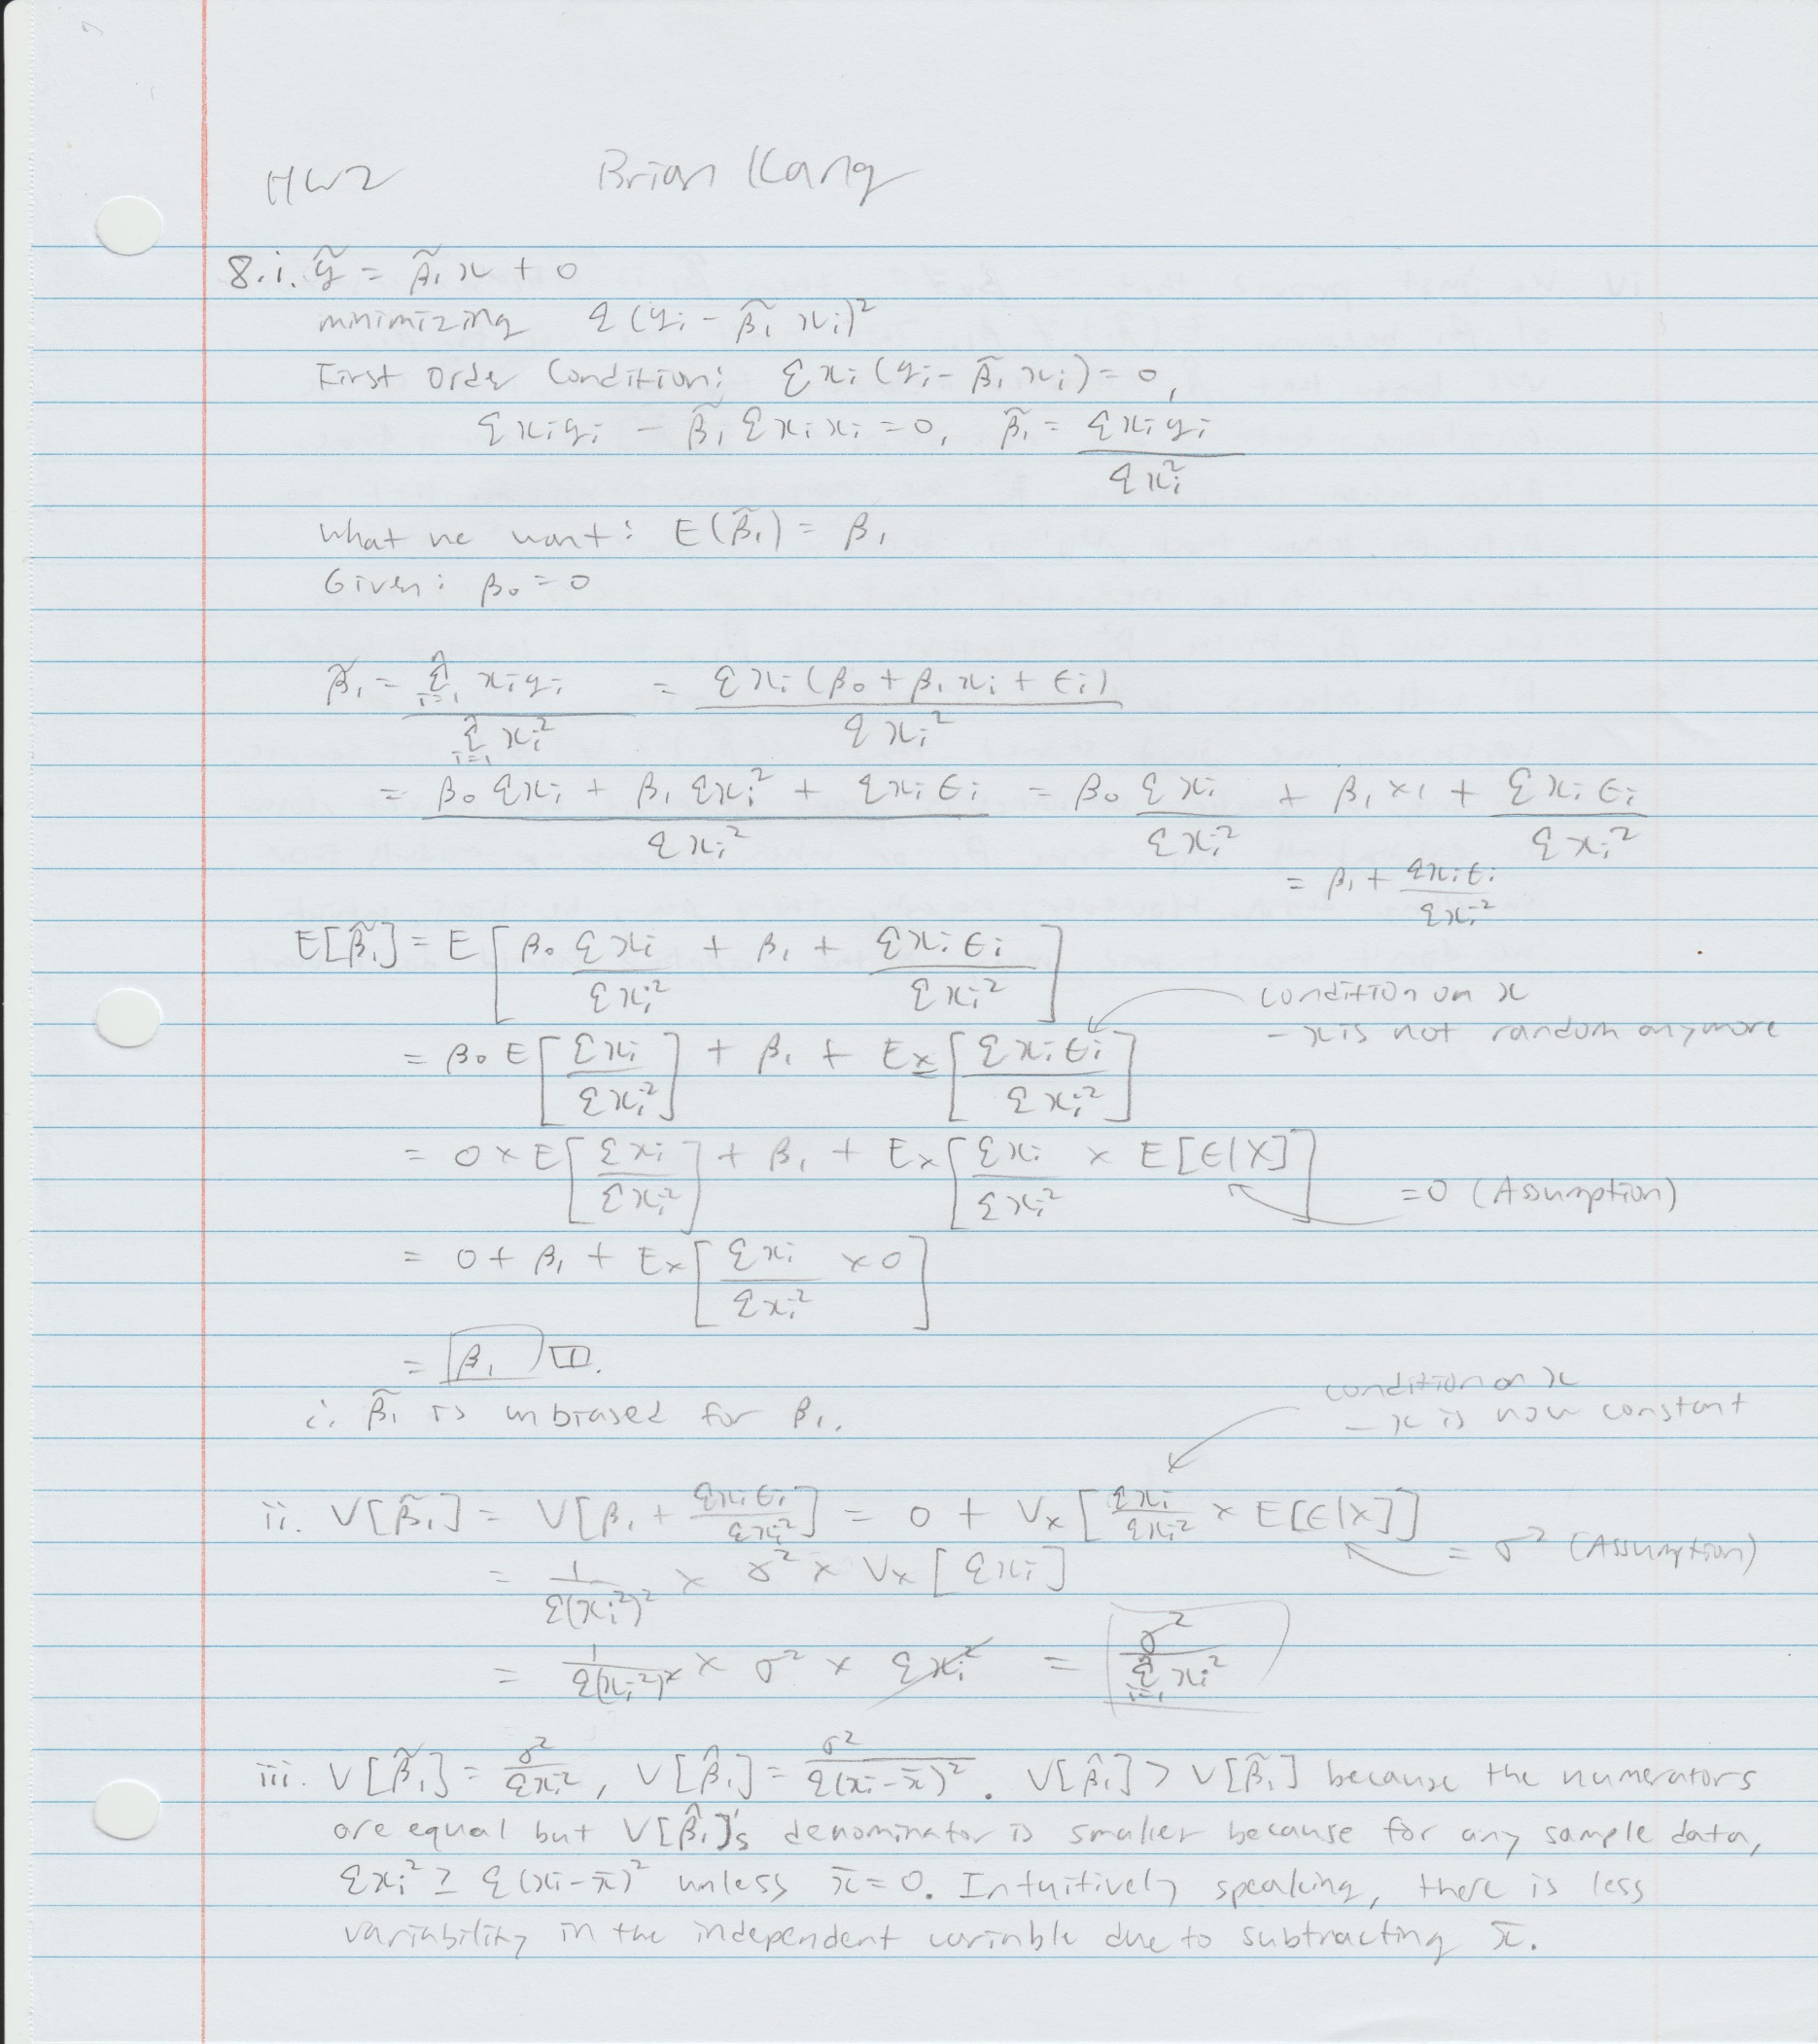 HW2 Brian Kang
8.i. ỹ = β̃₁x + 0
minimizing Σ(yᵢ - β̃₁xᵢ)²
First Order Condition: Σxᵢ(yᵢ - β̃₁xᵢ) = 0,
Σxᵢyᵢ - β̃₁Σxᵢxᵢ = 0, β̃₁ = Σxᵢyᵢ / Σxᵢ²
What we want: E(β̃₁) = β₁
Given: β₀ = 0
β̃₁ = Σⁿᵢ₌₁ xᵢyᵢ / Σⁿᵢ₌₁ xᵢ² = Σxᵢ(β₀ + β₁xᵢ + ϵᵢ) / Σxᵢ²
= (β₀Σxᵢ + β₁Σxᵢ² + Σxᵢϵᵢ) / Σxᵢ² = β₀ Σxᵢ / Σxᵢ² + β₁×1 + Σxᵢϵᵢ / Σxᵢ²
= β₁ + Σxᵢϵᵢ / Σxᵢ²
E[β̃₁] = E[β₀ Σxᵢ / Σxᵢ² + β₁ + Σxᵢϵᵢ / Σxᵢ²]
condition on x
- x is not random anymore
= β₀E[Σxᵢ / Σxᵢ²] + β₁ + Eₓ[Σxᵢϵᵢ / Σxᵢ²]
= 0×E[Σxᵢ / Σxᵢ²] + β₁ + Eₓ[Σxᵢ / Σxᵢ² × E[ϵ|X]] = 0 (Assumption)
= 0 + β₁ + Eₓ[Σxᵢ / Σxᵢ² × 0]
= β₁ □.
∴ β̃₁ is unbiased for β₁.
condition on x
- x is now constant
ii. V[β̃₁] = V[β₁ + Σxᵢϵᵢ / Σxᵢ²] = 0 + Vₓ[Σxᵢ / Σxᵢ² × E[ϵ|X]] = σ² (Assumption)
= 1 / Σ(xᵢ²)² × σ² × Vₓ[Σxᵢ]
= 1 / Σ(xᵢ²)² × σ² × Σxᵢ² = σ² / Σⁿᵢ₌₁ xᵢ²
iii. V[β̃₁] = σ² / Σxᵢ², V[β̂₁] = σ² / Σ(xᵢ - x̄)². V[β̂₁] > V[β̃₁] because the numerators
are equal but V[β̂₁]'s denominator is smaller because for any sample data,
Σxᵢ² ≥ Σ(xᵢ - x̄)² unless x̄ = 0. Intuitively speaking, there is less
variability in the independent variable due to subtracting x̄.